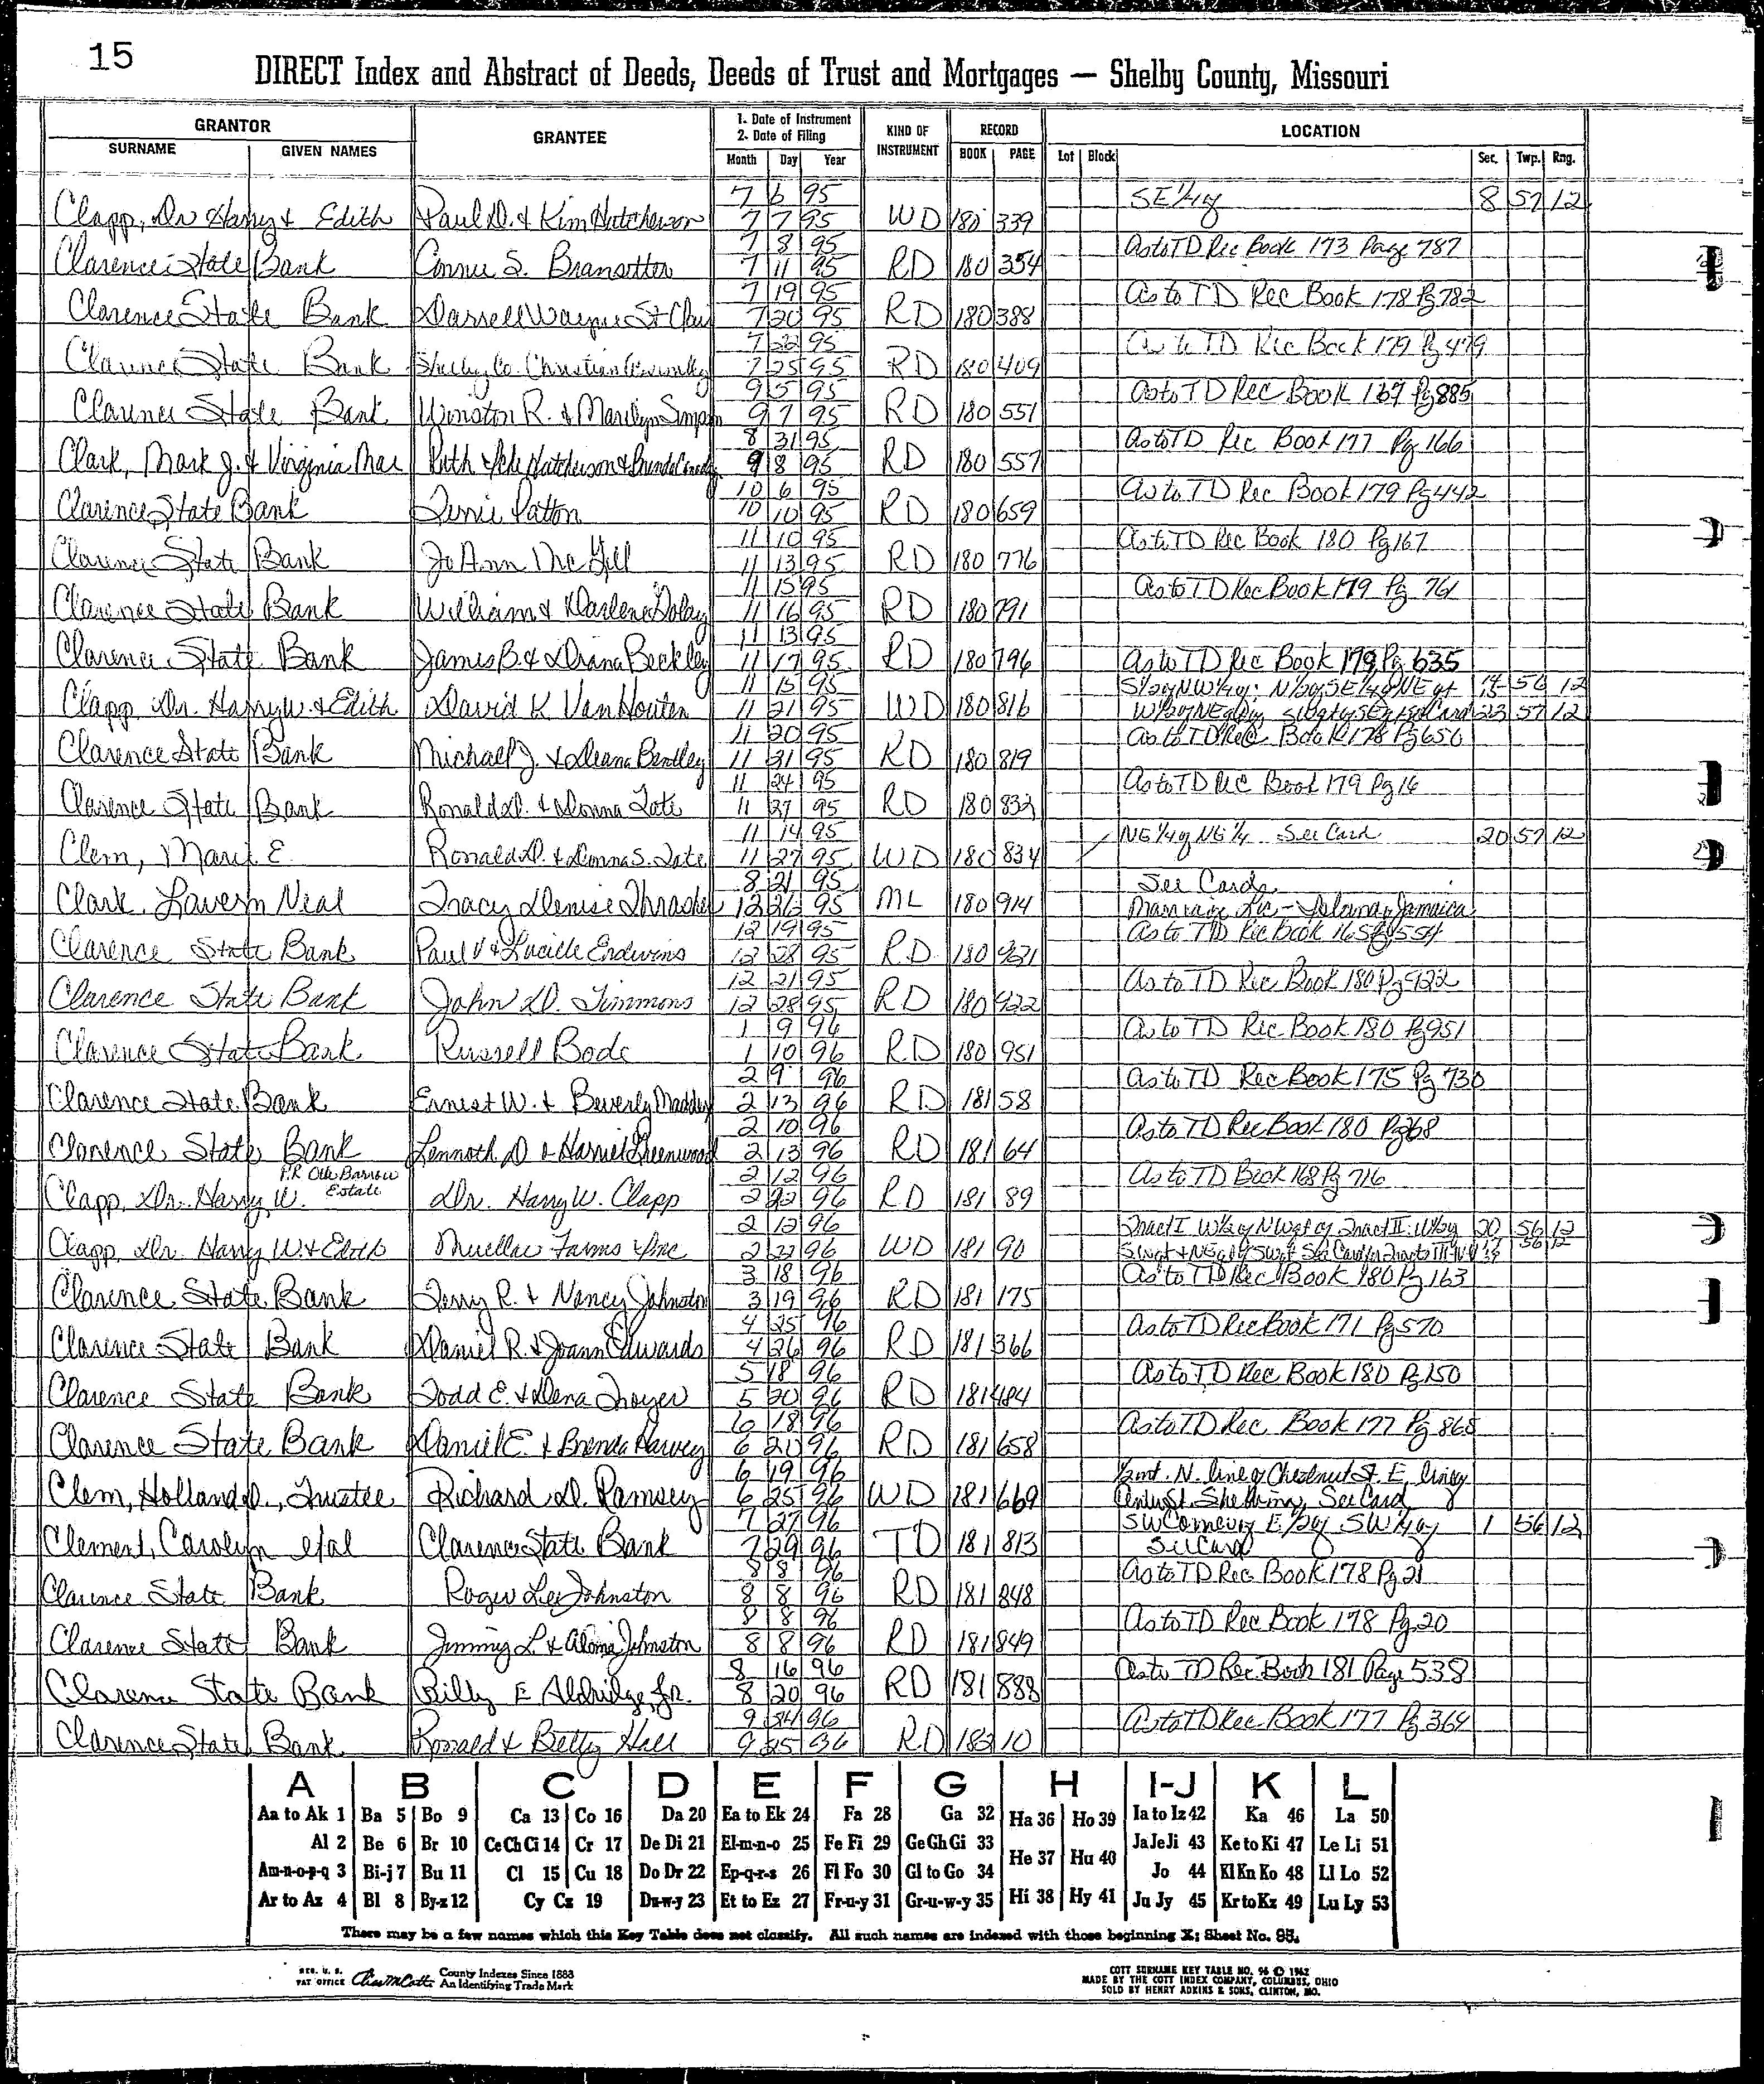 15
DIRECT Index and Abstract of Deeds, Deeds of Trust and Mortgages — Shelby County, Missouri
GRANTOR GRANTEE 1. Date of Instrument 2. Date of Filing KIND OF INSTRUMENT RECORD LOCATION
SURNAME GIVEN NAMES Month Day Year BOOK PAGE Lot Block Sec. Twp. Rng.
7 6 95 SE 1/4 of 8 57 12
Clapp, Dr Harry & Edith Paul D. & Kim Hutcherson 7 7 95 WD 180 339
7 8 95 As to TD Rec Book 173 Page 787
Clarence State Bank Connie S. Bransetter 7 11 95 RD 180 354
7 19 95 As to TD Rec Book 178 Pg 782
Clarence State Bank Darrell Wayne St Clair 7 20 95 RD 180 388
7 22 95 As to TD Rec Book 179 Pg 479
Clarence State Bank Shelby Co. Christian 7 25 95 RD 180 409
9 5 95 As to TD Rec Book 167 Pg 885
Clarence State Bank Winston R. & Marilyn Simpson 9 7 95 RD 180 551
8 31 95 As to TD Rec Book 177 Pg 166
Clark, Mark J. & Virginia Mae Ruth Hutcherson & Brenda 9 8 95 RD 180 557
10 6 95 As to TD Rec Book 179 Pg 442
Clarence State Bank Patton 10 10 95 RD 180 659
11 10 95 As to TD Rec Book 180 Pg 167
Clarence State Bank JoAnn McGill 11 13 95 RD 180 776
11 15 95 As to TD Rec Book 179 Pg 761
Clarence State Bank William & Darlene 11 16 95 RD 180 791
11 13 95
Clarence State Bank James B. & Diana Beckley 11 17 95 RD 180 796 As to TD Rec Book 179 Pg 635
11 15 95 S 1/2 of NW 1/4 of: N 1/2 of SE 1/4 of NE qt 56 12
Clapp Dr. Harry W. & Edith David K Van Houten 11 21 95 WD 180 816 See Card 23 57 12
11 20 95 As to TD Rec Book 178 Pg 656
Clarence State Bank Michael J. & Deana Bentley 11 21 95 RD 180 819
11 24 95 As to TD Rec Book 179 Pg 16
Clarence State Bank Ronald D. & Donna Tate 11 27 95 RD 180 832
11 14 95 NE 1/4 of NE 1/4 See Card 20 57 12
Clem, Marie E. Ronald D. & Donna S. Tate 11 27 95 WD 180 834
8 21 95 See Card
Clark, Lavern Neal Tracy Denise Thrasher 12 26 95 ML 180 914 Marriage Lic - Jamaica
12 19 95 As to TD Rec Book 165 Pg 554
Clarence State Bank Paul V & Lucille Erdwins 12 28 95 RD 180 921
12 21 95 As to TD Rec Book 180 Pg 922
Clarence State Bank John D. Timmons 12 28 95 RD 180 922
1 9 96 As to TD Rec Book 180 Pg 951
Clarence State Bank Russell Bode 1 10 96 RD 180 951
2 9 96 As to TD Rec Book 175 Pg 730
Clarence State Bank Ernest W. & Beverly Madden 2 13 96 RD 181 58
2 10 96 As to TD Rec Book 180 Pg 68
Clarence State Bank Lennoth D & Harriet Greenwood 2 13 96 RD 181 64
P.R. Barrow Estate 2 12 96 As to TD Book 168 Pg 716
Clapp, Dr. Harry W. Dr. Harry W. Clapp 2 22 96 RD 181 89
2 12 96 Tract I W 1/2 of NW qt of Tract II: W 1/2 of 20 56 12
Clapp, Dr. Harry W & Edith Mueller Farms Inc 2 22 96 WD 181 90
3 18 96 As to TD Rec Book 180 Pg 163
Clarence State Bank Terry R. & Nancy Johnston 3 19 96 RD 181 175
4 25 96 As to TD Rec Book 171 Pg 570
Clarence State Bank Daniel R. & Joann Edwards 4 26 96 RD 181 366
5 18 96 As to TD Rec Book 180 Pg 150
Clarence State Bank Todd E. & Dena Troyer 5 20 96 RD 181 484
6 18 96 As to TD Rec Book 177 Pg 868
Clarence State Bank Daniel E. & Brenda Harvey 6 20 96 RD 181 658
6 19 96 Int. N. line of Chestnut St. E. line of
Clem, Holland D., Trustee Richard D. Ramsey 6 25 96 WD 181 669 Center St. Shelbina, See Card
7 27 96 SW Corner of E 1/2 of SW 1/4 of 1 56 12
Clement, Carolyn etal Clarence State Bank 7 29 96 TD 181 813 See Card
8 8 96 As to TD Rec Book 178 Pg 21
Clarence State Bank Roger Lee Johnston 8 8 96 RD 181 848
8 8 96 As to TD Rec Book 178 Pg 20
Clarence State Bank Jimmy L. & Johnston 8 8 96 RD 181 849
8 16 96 As to TD Rec Book 181 Page 538
Clarence State Bank Billy E Aldridge, Jr. 8 20 96 RD 181 888
9 24 96 As to TD Rec Book 177 Pg 364
Clarence State Bank Ronald & Betty Hall 9 25 96 RD 182 10
A B C D E F G H I-J K L
Aa to Ak 1 Ba 5 Bo 9 Ca 13 Co 16 Da 20 Ea to Ek 24 Fa 28 Ga 32 Ha 36 Ho 39 Ia to Iz 42 Ka 46 La 50
Al 2 Be 6 Br 10 Ce Ch Ci 14 Cr 17 De Di 21 El-m-n-o 25 Fe Fi 29 Ge Gh Gi 33 He 37 Hu 40 Ja Je Ji 43 Ke to Ki 47 Le Li 51
Am-n-o-p-q 3 Bi-j 7 Bu 11 Cl 15 Cu 18 Do Dr 22 Ep-q-r-s 26 Fl Fo 30 Gl to Go 34 Jo 44 Kl Kn Ko 48 Ll Lo 52
Ar to Az 4 Bl 8 By-z 12 Cy Cz 19 Du-w-y 23 Et to Ez 27 Fr-u-y 31 Gr-u-w-y 35 Hi 38 Hy 41 Ju Jy 45 Kr to Kz 49 Lu Ly 53
There may be a few names which this Key Table does not classify. All such names are indexed with those beginning X; Sheet No. 95.
REG. U. S. PAT OFFICE County Indexes Since 1888 An Identifying Trade Mark
COTT SURNAME KEY TABLE NO. 96 © 1962
MADE BY THE COTT INDEX COMPANY, COLUMBUS, OHIO
SOLD BY HENRY ADKINS & SONS, CLINTON, MO.